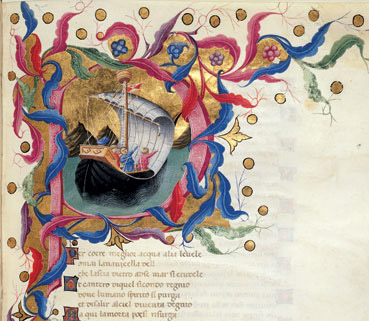 Per correr meglior acqua alza levele
omai lanavicella dell
che lascia dietro adse mar si crudele
et cantero diquel secondo regno
dove lumano spirito si purga
et disalir alciel diventa degno
Ma qui lamorta poesi risurga